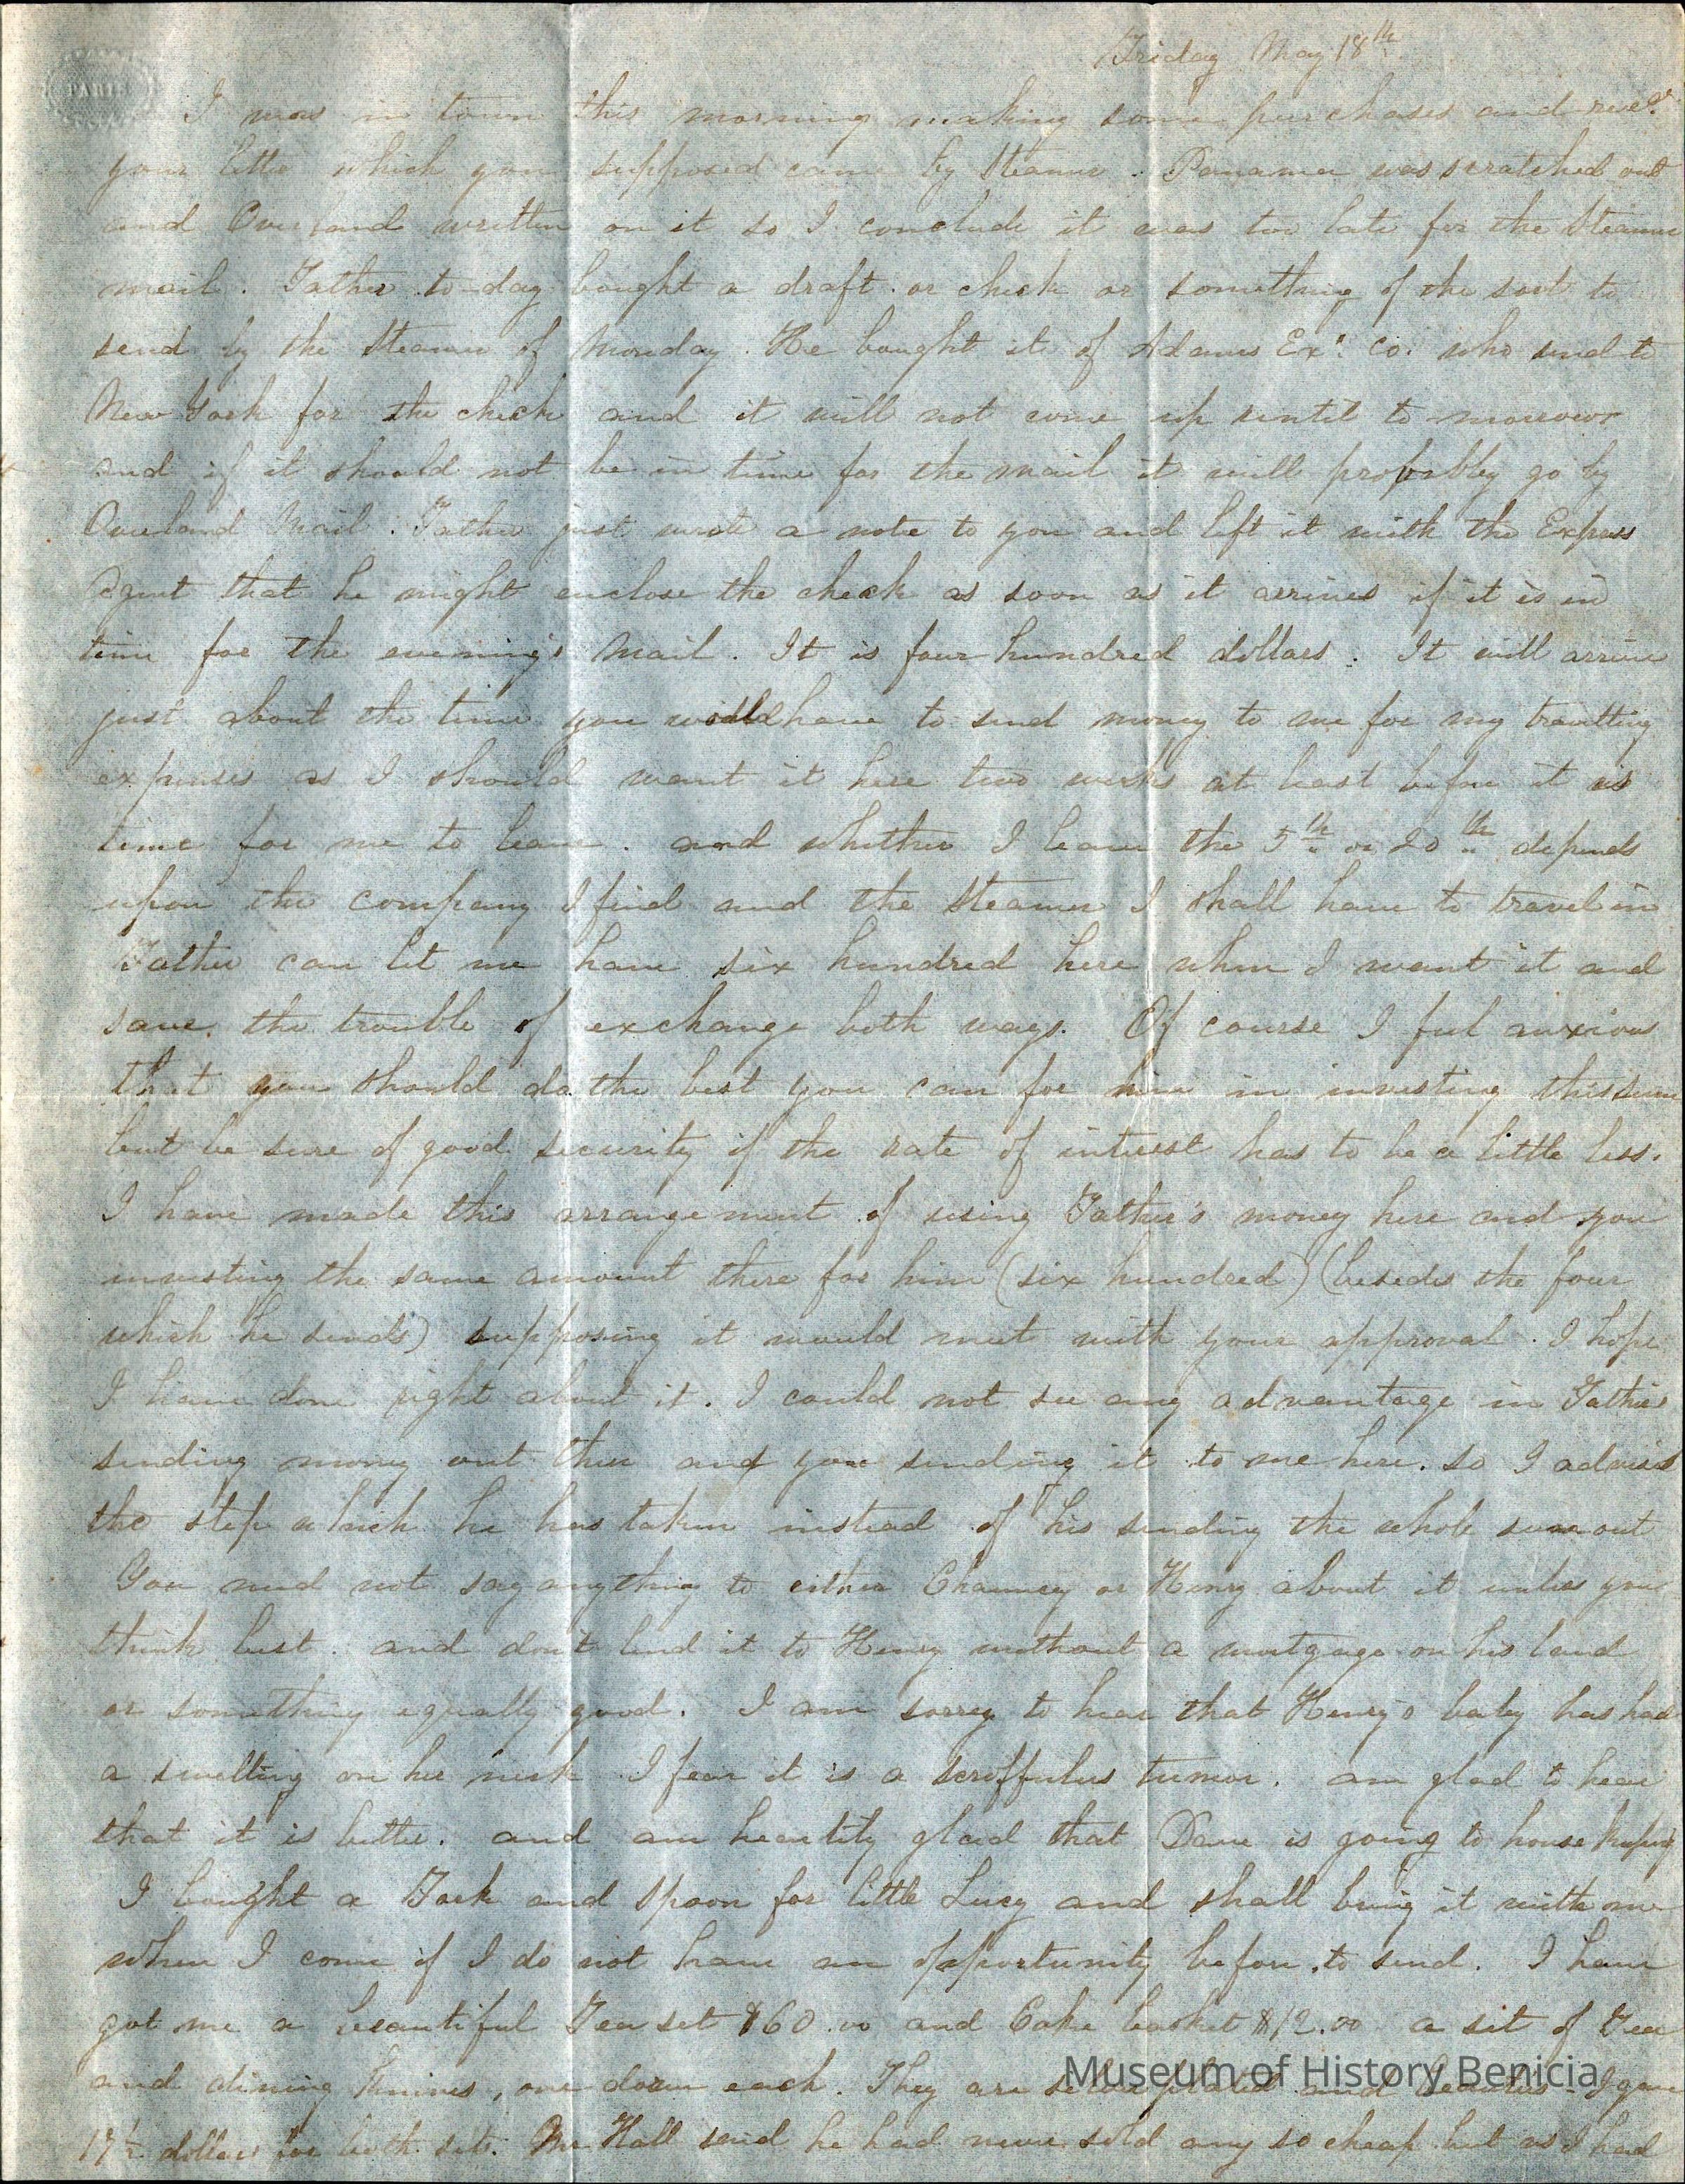 PARIS
Friday May 18th
I was in town this morning making some purchases and recd.
your letter which you supposed came by Steamer. Panama was scratched out
and Overland written on it so I conclude it was too late for the Steamer
mail. Father to-day bought a draft or check or something of the sort to
send by the Steamer of Monday. He bought it of Adams Exs. Co. who send to
New York for the check and it will not come up until to morrow
and if it should not be in time for the mail it will probably go by
Overland Mail. Father just wrote a note to you and left it with the Express
Agent that he might enclose the check as soon as it arrives if it is in
time for the evening's Mail. It is four hundred dollars. It will arrive
just about the time you would have to send money to me for my travelling
expenses as I should want it here two weeks at least before it is
time for me to leave. and whether I leave the 5th or 20th depends
upon the company I find and the Steamer I shall have to travel in
Father can let me have six hundred here when I want it and
save the trouble of exchange both ways. Of course I feel anxious
that you should do the best you can for him in investing this sum
but be sure of good security if the rate of interest has to be a little less.
I have made this arrangement of using Father's money here and you
investing the same amount there for him (six hundred) (besides the four
which he sends) supposing it would meet with your approval. I hope
I have done right about it. I could not see any advantage in Father
sending money out there and you sending it to me here. so I advised
the step which he has taken instead of his sending the whole sum out
You need not say anything to either Chauncey or Henry about it unless you
think best. and don't lend it to Henry without a mortgage on his land
or something equally good. I am sorry to hear that Henry's baby has had
a swelling on her neck I fear it is a scroffulus tumor. am glad to hear
that it is better. and am heartily glad that Dave is going to house keeping
I bought a Fork and Spoon for little Lucy and shall bring it with me
when I come if I do not have an opportunity before to send. I have
got me a beautiful Tea set $60.00 and Cake basket $12.00 a set of Tea
and dining Knives, one dozen each. They are silver plated and beauties - I gave
17½ dollars for both sets. Mr Hall said he had never sold any so cheap but as I had
Museum of History Benicia